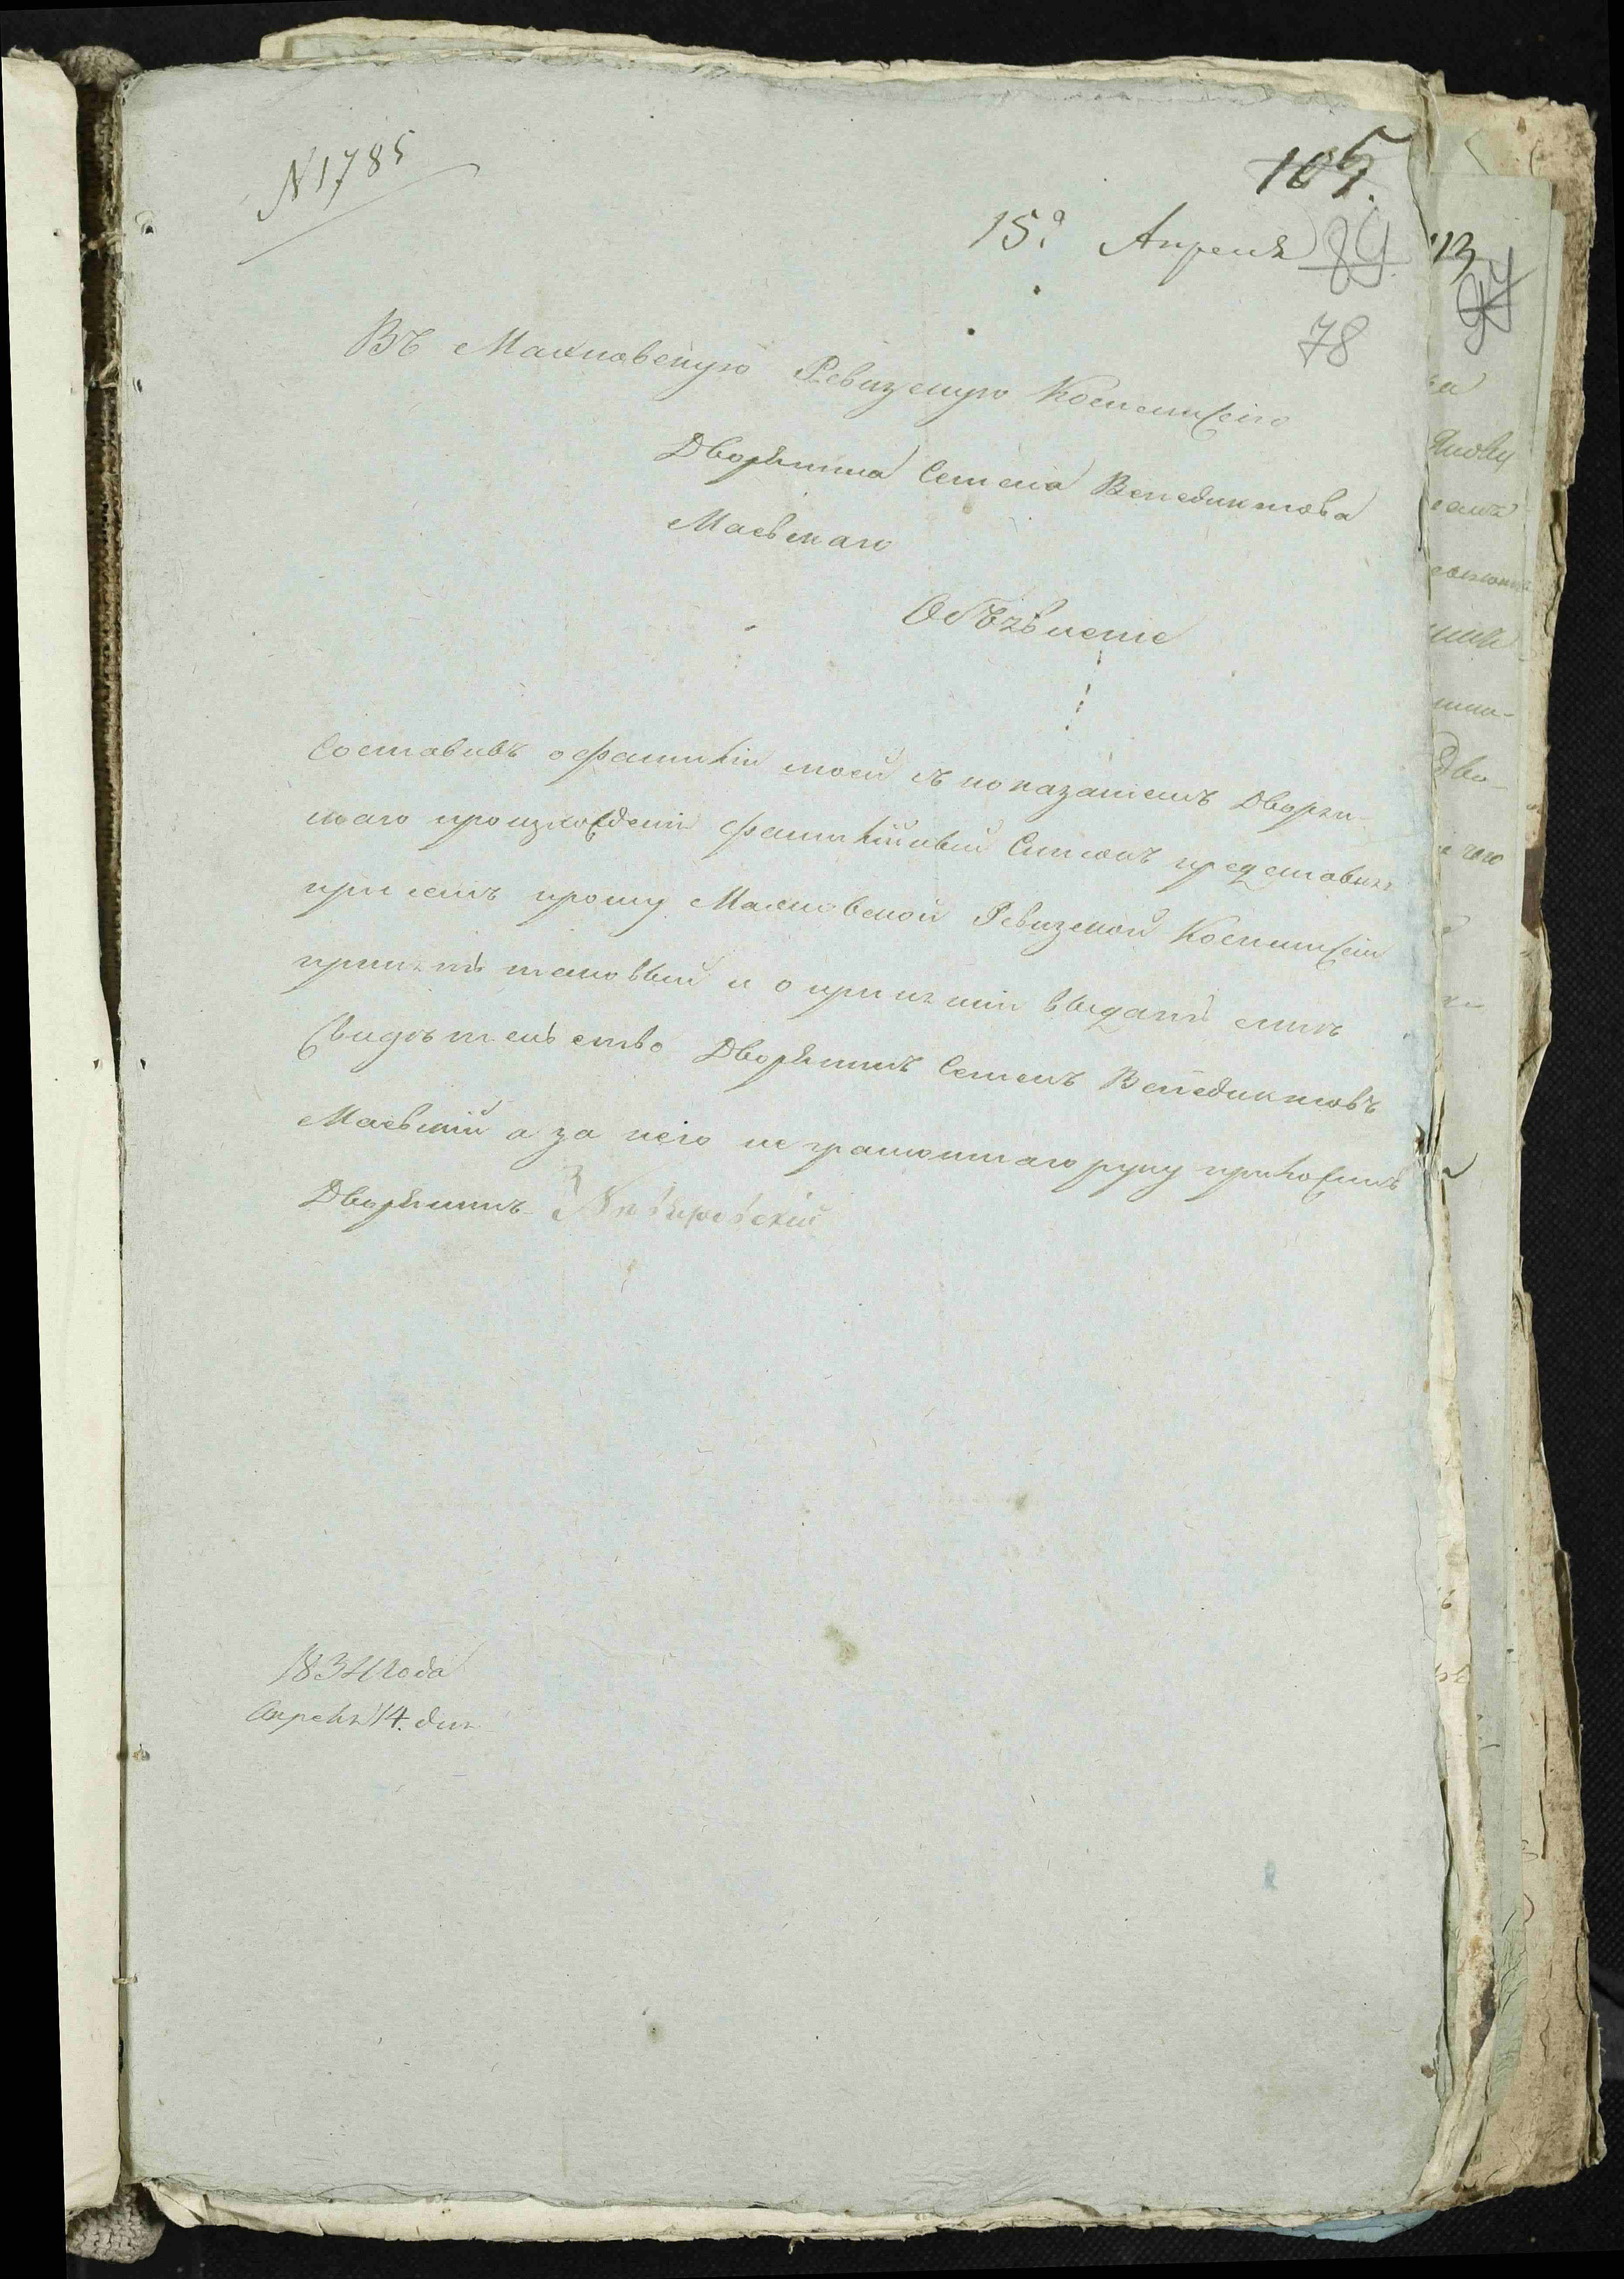 N 1785
105.
15го Апреля
89
78
Въ Махновскую Ревизскую Коммиссію
Дворянина Семена Венедиктова
Маевскаго
Объявленіе
Составивъ о фамиліи моей съ показаніемъ Дворян-
скаго произхожденія фамилійный Списокъ представляя
при семъ прошу Махновской Ревизской Коммиссіи
принять таковый и о принятіи выдать мнѣ
Свидѣтельство Дворянинъ Семенъ Венедиктовъ
Маевскій а за него неграмотнаго руку приложилъ
Дворянинъ
1834 Года
Апреля 14. дня